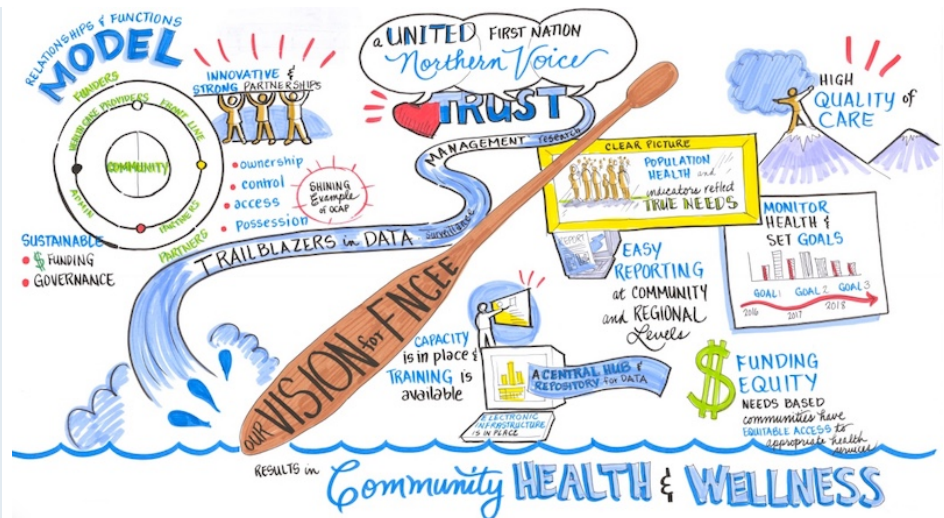 RELATIONSHIPS & FUNCTIONS
MODEL
FUNDERS
HEALTH CARE PROVIDERS
FRONT LINE
COMMUNITY
ADMIN
PARTNERS
PARTNERS
SUSTAINABLE
$ FUNDING
GOVERNANCE
INNOVATIVE &
STRONG PARTNERSHIPS
ownership
control
access
Possession
SHINING
Example
of OCAP
a UNITED FIRST NATION
Northern Voice
TRUST
MANAGEMENT research
TRAILBLAZERS in DATA surveillance
OUR VISION for FNCEE
CLEAR PICTURE
POPULATION
HEALTH and
indicators reflect
TRUE NEEDS
HIGH
QUALITY of
CARE
REPORT
EASY
REPORTING
at COMMUNITY
and REGIONAL
Levels
MONITOR
HEALTH &
SET GOALS
GOAL 1 GOAL 2 GOAL 3
2016 2017 2018
CAPACITY
is in place &
TRAINING is
available
A CENTRAL HUB &
REPOSITORY for DATA
ELECTRONIC
INFRASTRUCTURE
IS IN PLACE
$ FUNDING
EQUITY
NEEDS BASED
communities have
EQUITABLE ACCESS to
appropriate health
services
RESULTS in Community HEALTH & WELLNESS